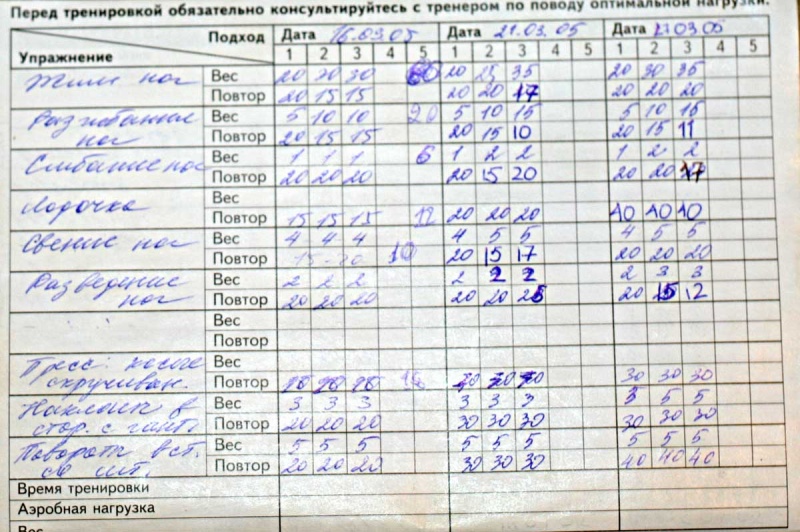 Перед тренировкой обязательно консультируйтесь с тренером по поводу оптимальной нагрузки.
Подход Дата 16.03.05 Дата 21.03.05 Дата 03 05
Упражнение 1 2 3 4 5 1 2 3 4 5 1 2 3 4 5
Жим ног Вес 20 30 30 20 25 35 20 30 35
Повтор 20 15 15 20 20 17 20 20 20
Разгибание ног Вес 5 10 10 20 5 10 15 5 10 15
Повтор 20 15 15 20 15 10 20 15 11
Сгибание ног Вес 1 1 1 6 1 2 2 1 2 2
Повтор 20 20 20 20 15 20 20 20 17
Лодочка Вес
Повтор 15 15 15 12 20 20 20 40 40 40
Сведение ног Вес 4 4 4 4 5 5 4 5 5
Повтор 15 - 20 10 20 15 17 20 20 20
Разведение ног Вес 2 2 2 2 2 2 2 3 3
Повтор 20 20 20 20 20 25 20 15 12
Вес
Повтор
Пресс косые скручиван. Вес
Повтор 30 30 30
Наклоны в стор. с гант. Вес 3 3 3 3 3 3 5 5
Повтор 20 20 20 30 30 30 30 30 30
Повороты в ст. со шт. Вес 5 5 5 5 5 5 5 5 5
Повтор 20 20 20 30 30 30 40 40 40
Время тренировки
Аэробная нагрузка
Вес